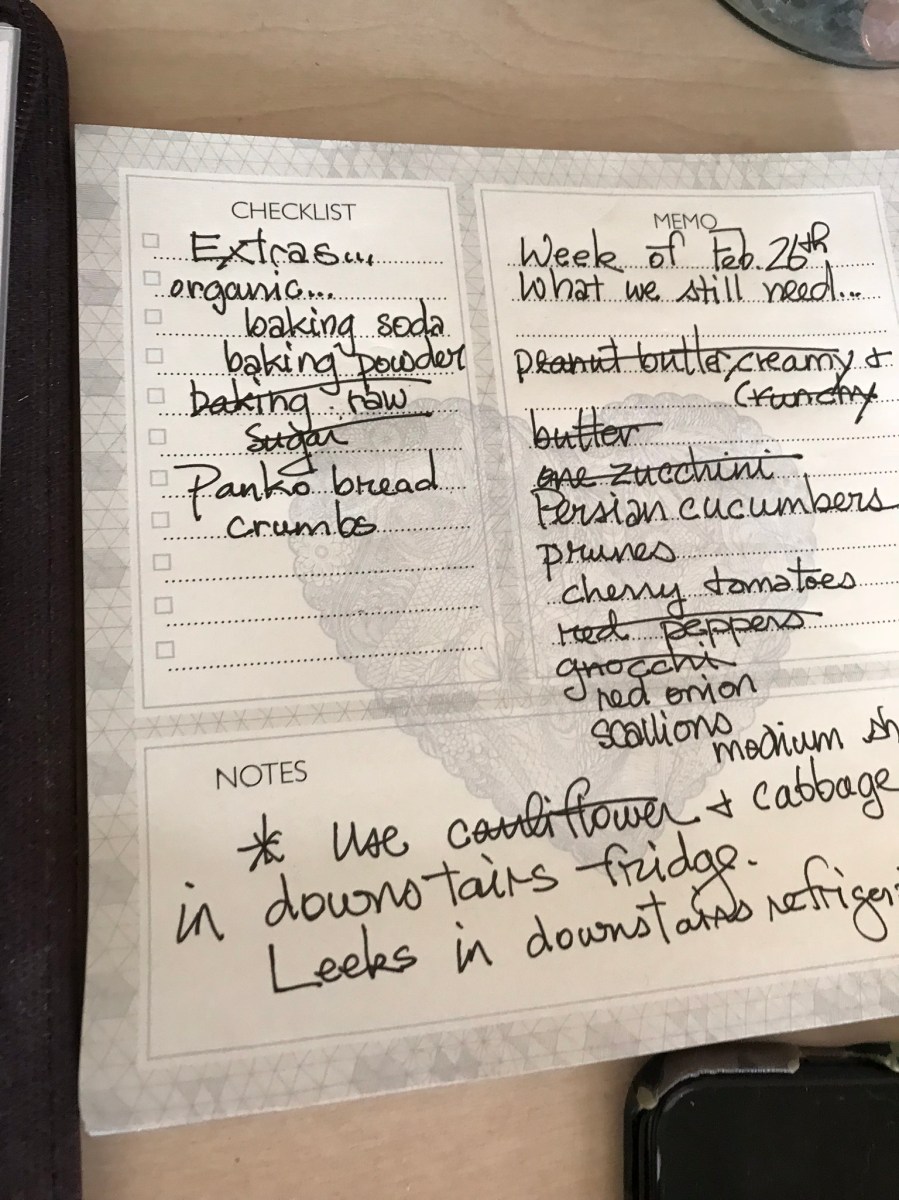 CHECKLIST
Extras...
organic...
baking soda
baking powder
baking raw
sugar
Panko bread
crumbs
MEMO
Week of Feb. 26th
What we still need...
peanut butter, creamy &
crunchy
butter
one zucchini
Persian cucumbers
prunes
cherry tomatoes
red peppers
gnocchi
red onion
scallions
medium sh
NOTES
* Use cauliflower & cabbage
in downstairs fridge.
Leeks in downstairs refriger